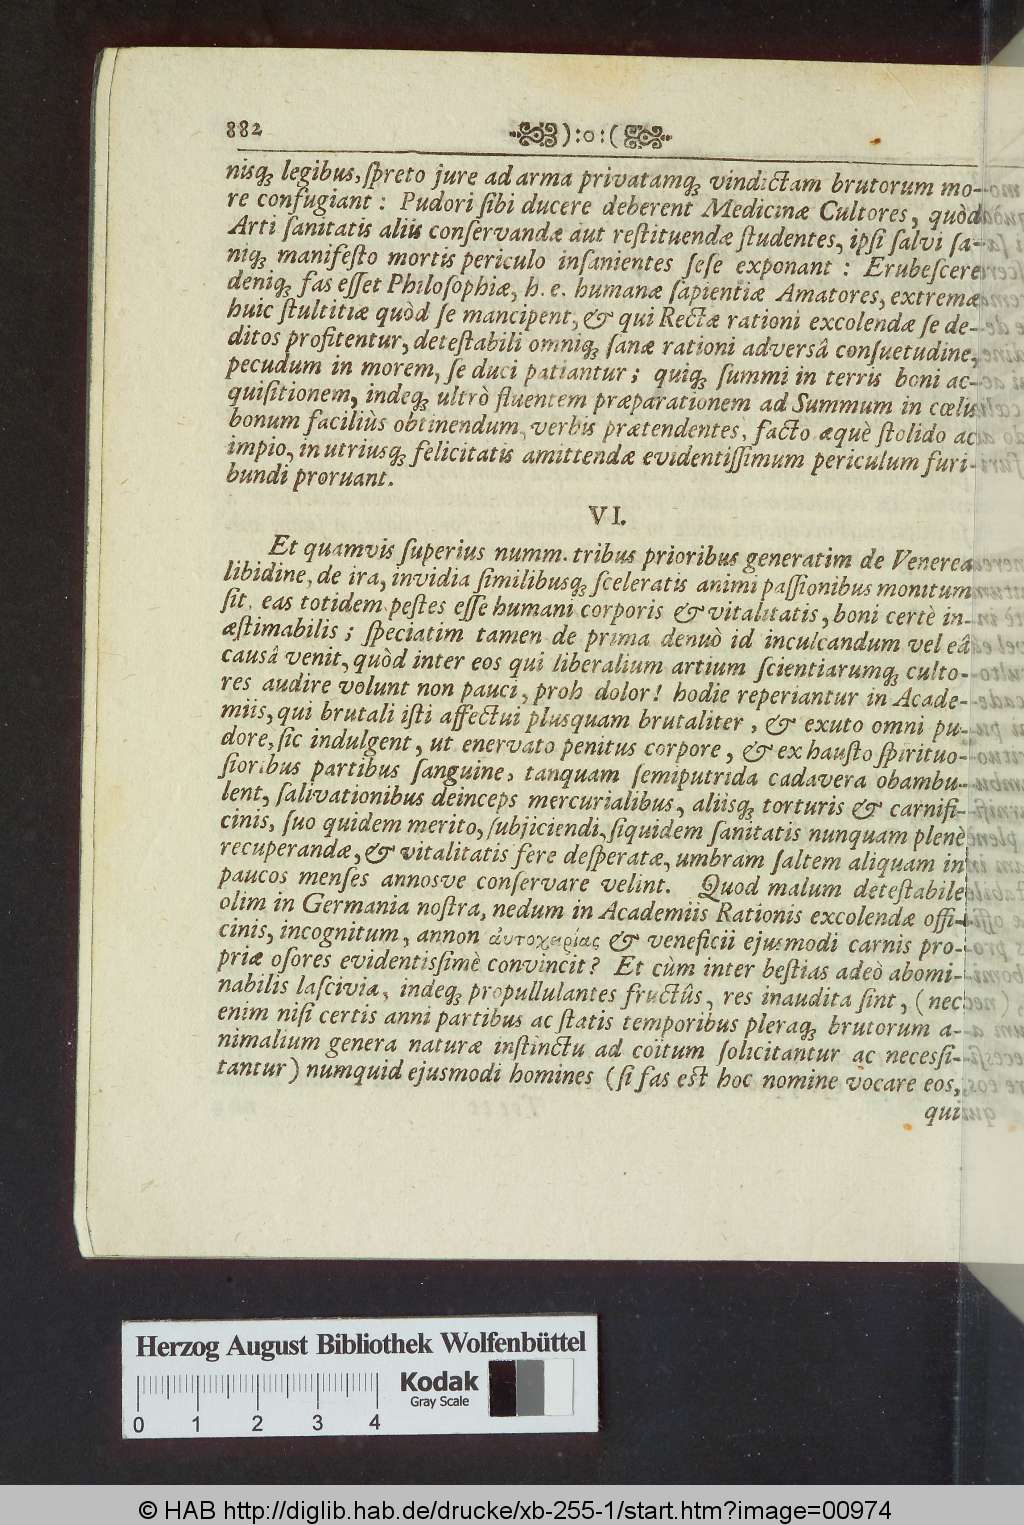 882 ):o:(
nisq; legibus, ſpreto jure ad arma privatamq; vindictam brutorum mo-
re confugiant: Pudori ſibi ducere deberent Medicinæ Cultores, quòd
Arti ſanitatis aliis conſervandæ aut reſtituendæ ſtudentes, ipſi ſalvi ſa-
niq; manifeſto mortis periculo inſanientes ſeſe exponant: Erubeſcere
deniq; fas eſſet Philoſophiæ, h. e. humanæ ſapientiæ Amatores, extremæ
huic ſtultitiæ quòd ſe mancipent, & qui Rectæ rationi excolendæ ſe de-
ditos profitentur, deteſtabili omniq; ſanæ rationi adversâ conſuetudine,
pecudum in morem, ſe duci patiantur; quiq; ſummi in terris boni ac-
quiſitionem, indeq; ultrò fluentem præparationem ad Summum in cœlis
bonum faciliùs obtinendum, verbis prætendentes, facto æquè ſtolido ac
impio, in utriusq; felicitatis amittendæ evidentiſſimum periculum furi-
bundi proruant.
VI.
Et quamvis ſuperius numm. tribus prioribus generatim de Venerea
libidine, de ira, invidia ſimilibusq; ſceleratis animi paſſionibus monitum
ſit, eas totidem peſtes eſſe humani corporis & vitalitatis, boni certè in-
æſtimabilis; ſpeciatim tamen de prima denuò id inculcandum vel eâ
causâ venit, quòd inter eos qui liberalium artium ſcientiarumq; culto-
res audire volunt non pauci, proh dolor! hodie reperiantur in Acade-
miis, qui brutali iſti affectui plusquam brutaliter, & exuto omni pu-
dore, ſic indulgent, ut enervato penitus corpore, & exhauſto ſpirituo-
ſioribus partibus ſanguine, tanquam ſemiputrida cadavera obambu-
lent, ſalivationibus deinceps mercurialibus, aliisq; torturis & carnifi-
cinis, ſuo quidem merito, ſubjiciendi, ſiquidem ſanitatis nunquam plenè
recuperandæ, & vitalitatis fere deſperatæ, umbram ſaltem aliquam in
paucos menſes annosve conſervare velint. Quod malum deteſtabile
olim in Germania noſtra, nedum in Academiis Rationis excolendæ offi-
cinis, incognitum, annon αὐτοχειρίας & veneficii ejusmodi carnis pro-
priæ oſores evidentissimè convincit? Et cùm inter beſtias adeò abomi-
nabilis laſcivia, indeq; propullulantes fructûs, res inaudita ſint, (nec
enim niſi certis anni partibus ac ſtatis temporibus pleraq; brutorum a-
nimalium genera naturæ inſtinctu ad coitum ſolicitantur ac neceſſi-
tantur) numquid ejusmodi homines (ſi fas eſt hoc nomine vocare eos,
qui
Herzog August Bibliothek Wolfenbüttel
Kodak
Gray Scale
0 1 2 3 4
© HAB http://diglib.hab.de/drucke/xb-255-1/start.htm?image=00974